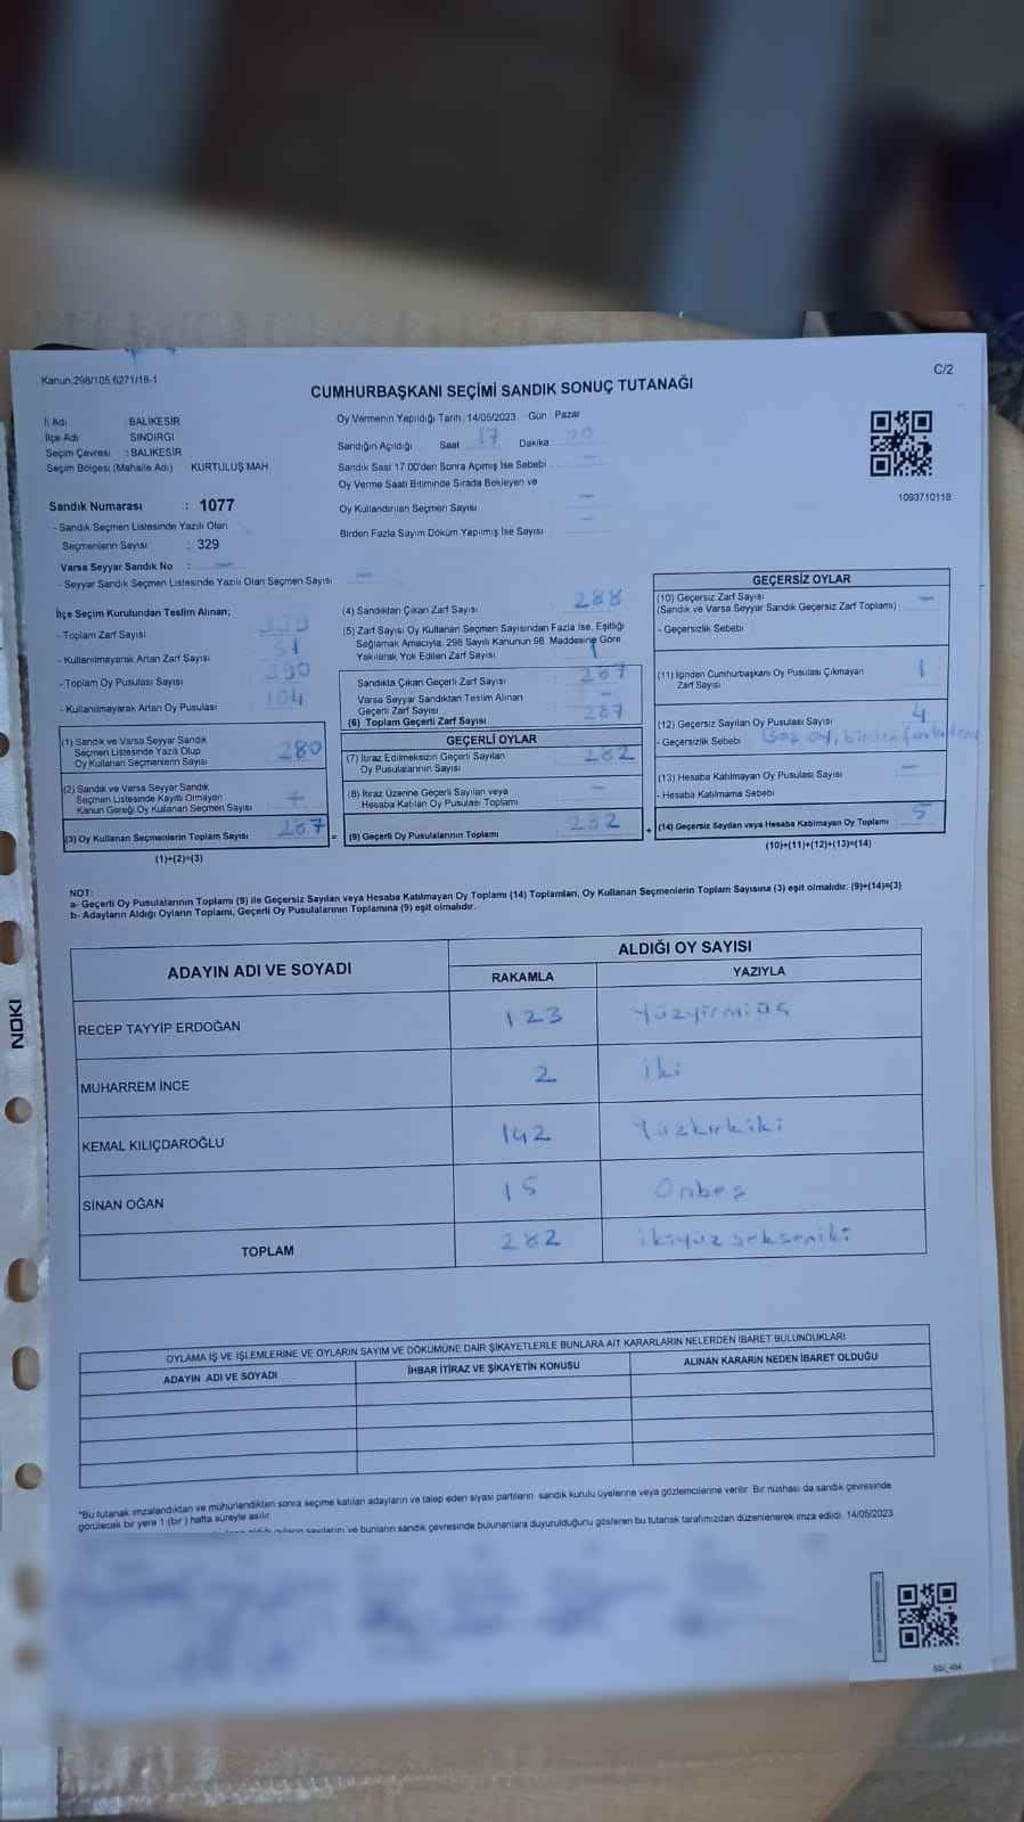 Kanun:298/105 6271/18-1
C/2
CUMHURBAŞKANI SEÇİMİ SANDIK SONUÇ TUTANAĞI
İl Adı BALIKESİR
İlçe Adı SINDIRGI
Seçim Çevresi : BALIKESİR
Seçim Bölgesi (Mahalle Adı) KURTULUŞ MAH
Oy Vermenin Yapıldığı Tarih: 14/05/2023 Gün Pazar
Sandığın Açıldığı Saat 17 Dakika 00
Sandık Saat 17.00'den Sonra Açımış İse Sebebi
Oy Verme Saati Bitiminde Sırada Bekleyen ve
Oy Kullandırılan Seçmen Sayısı
Birden Fazla Sayım Döküm Yapılmış İse Sayısı
1093710118
Sandık Numarası : 1077
- Sandık Seçmen Listesinde Yazılı Olan
Seçmenlerin Sayısı : 329
Varsa Seyyar Sandık No :
- Seyyar Sandık Seçmen Listesinde Yazılı Olan Seçmen Sayısı
İlçe Seçim Kurulundan Teslim Alınan;
- Toplam Zarf Sayısı
- Kullanılmayarak Artan Zarf Sayısı
- Toplam Oy Pusulası Sayısı
- Kullanılmayarak Artan Oy Pusulası 104
(1) Sandık ve Varsa Seyyar Sandık
Seçmen Listesinde Yazılı Olup
Oy Kullanan Seçmenlerin Sayısı 280
(2) Sandık ve Varsa Seyyar Sandık
Seçmen Listesinde Kayıtlı Olmayan
Kanun Gereği Oy Kullanan Seçmen Sayısı
(3) Oy Kullanan Seçmenlerin Toplam Sayısı 287
(1)+(2)=(3)
(4) Sandıktan Çıkan Zarf Sayısı 288
(5) Zarf Sayısı Oy Kullanan Seçmen Sayısından Fazla İse, Eşitliği
Sağlamak Amacıyla, 298 Sayılı Kanunun 98. Maddesine Göre
Yakılarak Yok Edilen Zarf Sayısı 1
Sandıkta Çıkan Geçerli Zarf Sayısı 287
Varsa Seyyar Sandıktan Teslim Alınan
Geçerli Zarf Sayısı -
(6) Toplam Geçerli Zarf Sayısı 287
GEÇERLİ OYLAR
(7) İtiraz Edilmeksizin Geçerli Sayılan
Oy Pusulalarının Sayısı 282
(8) İtiraz Üzerine Geçerli Sayılan veya
Hesaba Katılan Oy Pusulası Toplamı -
(9) Geçerli Oy Pusulalarının Toplamı 282
GEÇERSİZ OYLAR
(10) Geçersiz Zarf Sayısı -
(Sandık ve Varsa Seyyar Sandık Geçersiz Zarf Toplamı)
- Geçersizlik Sebebi
(11) İçinden Cumhurbaşkanı Oy Pusulası Çıkmayan
Zarf Sayısı 1
(12) Geçersiz Sayılan Oy Pusulası Sayısı 4
- Geçersizlik Sebebi Boş oy, birden
(13) Hesaba Katılmayan Oy Pusulası Sayısı -
- Hesaba Katılmama Sebebi
(14) Geçersiz Sayılan veya Hesaba Katılmayan Oy Toplamı 5
(10)+(11)+(12)+(13)=(14)
NOT:
a- Geçerli Oy Pusulalarının Toplamı (9) ile Geçersiz Sayılan veya Hesaba Katılmayan Oy Toplamı (14) Toplamları, Oy Kullanan Seçmenlerin Toplam Sayısına (3) eşit olmalıdır. (9)+(14)=(3)
b- Adayların Aldığı Oyların Toplamı, Geçerli Oy Pusulalarının Toplamına (9) eşit olmalıdır.
ADAYIN ADI VE SOYADI ALDIĞI OY SAYISI
RAKAMLA YAZIYLA
RECEP TAYYİP ERDOĞAN 123 Yüzyirmiüç
MUHARREM İNCE 2 iki
KEMAL KILIÇDAROĞLU 142 Yüzkırkiki
SİNAN OĞAN 15 Onbeş
TOPLAM 282 ikiyüzsekseniki
OYLAMA İŞ VE İŞLEMLERİNE VE OYLARIN SAYIM VE DÖKÜMÜNE DAİR ŞİKAYETLERLE BUNLARA AİT KARARLARIN NELERDEN İBARET BULUNDUKLARI
ADAYIN ADI VE SOYADI İHBAR İTİRAZ VE ŞİKAYETİN KONUSU ALINAN KARARIN NEDEN İBARET OLDUĞU
*Bu tutanak imzalandıktan ve mühürlendikten sonra seçime katılan adayların ve talep eden siyasi partilerin sandık kurulu üyelerine veya gözlemcilerine verilir. Bir nüshası da sandık çevresinde
görülecek bir yere 1 (bir) hafta süreyle asılır.
sayılarını ve bunların sandık çevresinde bulunanlara duyurulduğunu gösteren bu tutanak tarafımızdan düzenlenerek imza edildi. 14/05/2023
NOKI